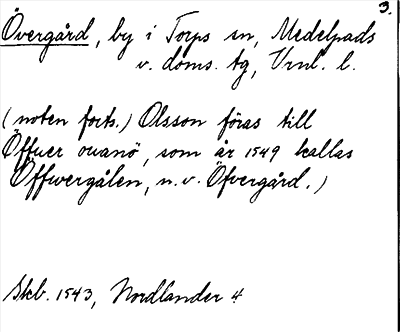 3.
Övergård, by i Torps sn, Medelpads
v. doms. tg, Vrnl. l.
(noten forts.) Olsson föras till
Öffuer ouanö, som år 1549 kallas
Öffwergålen, n.v. Öfvergård.)
Skb. 1543, Nordlander 4